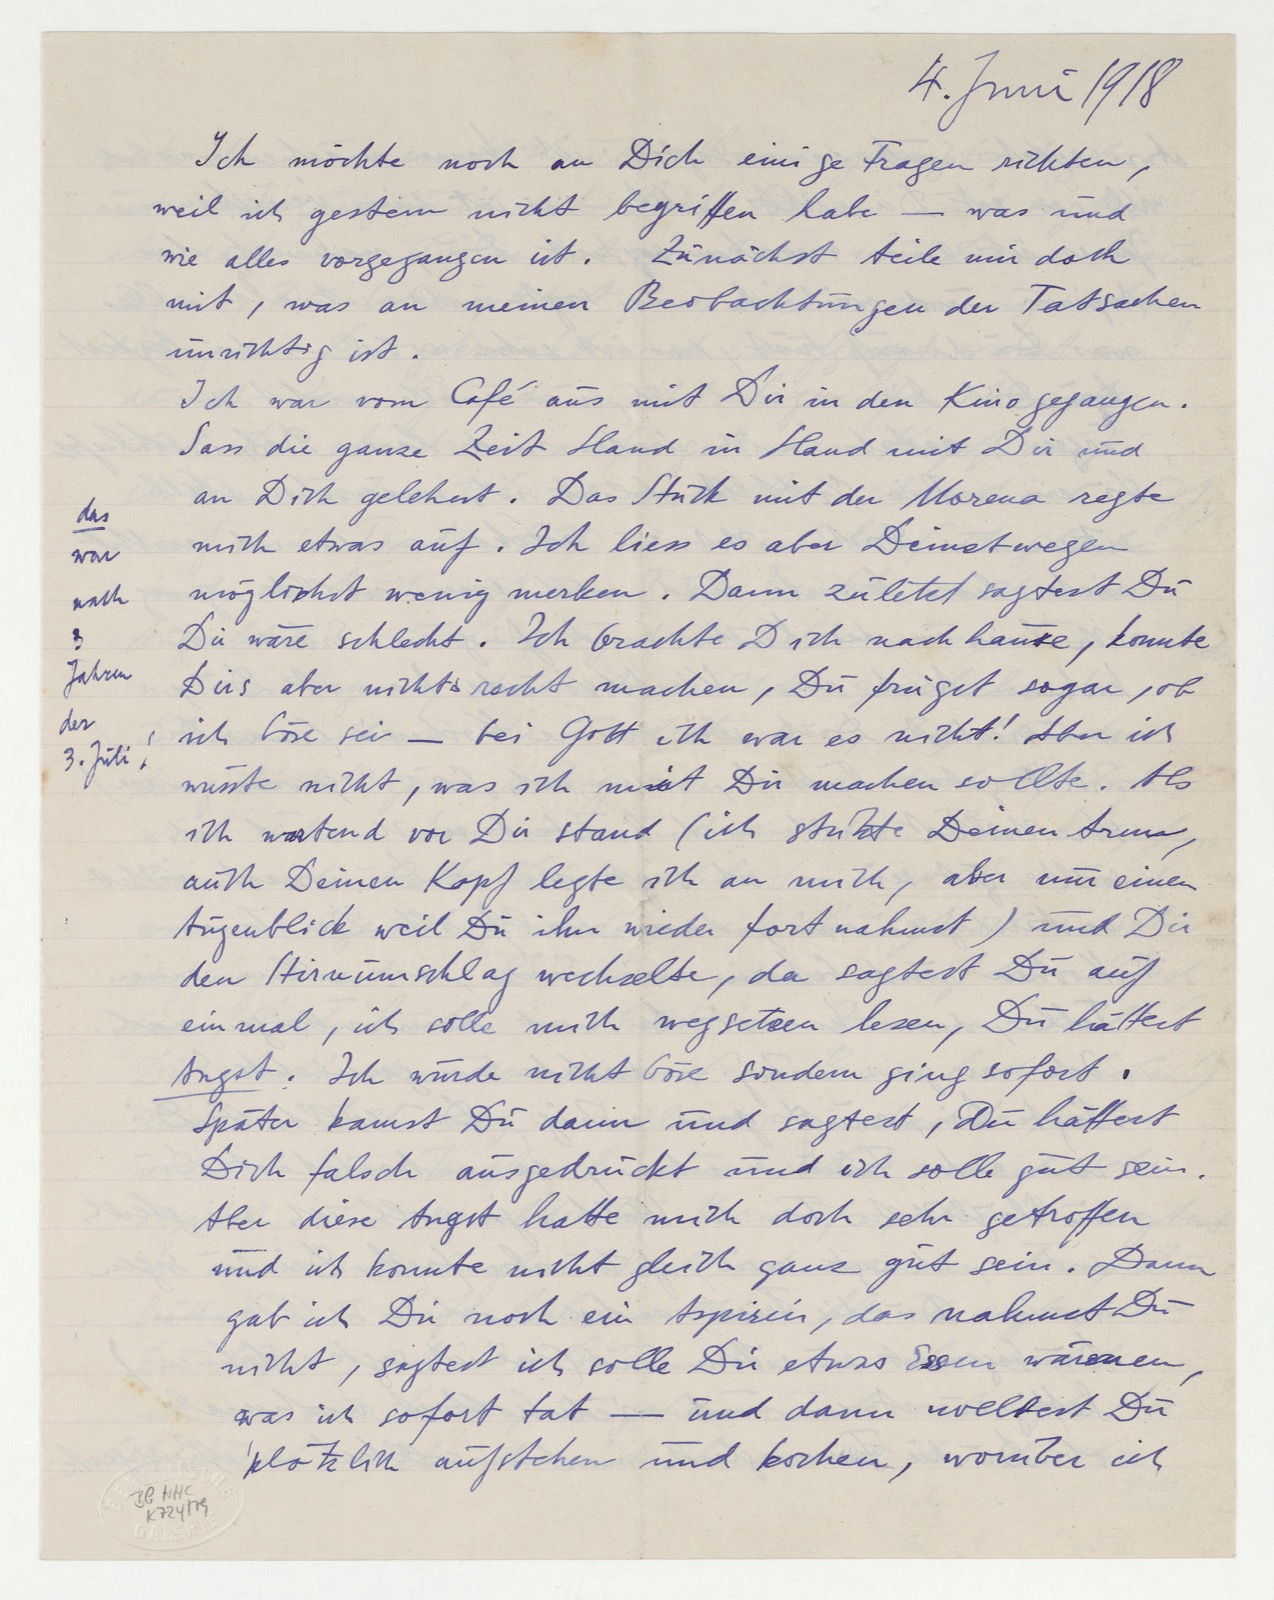 4. Juni 1918
Ich möchte noch an Dich einige Fragen richten,
weil ich gestern nicht begriffen habe — was und
wie alles vorgegangen ist. Zunächst teile mir doch
mit, was an meinen Beobachtungen der Tatsachen
unrichtig ist.
Ich war vom Café aus mit Dir in den Kino gegangen.
Sass die ganze Zeit Hand in Hand mit Dir und
an Dich gelehnt. Das Stück mit der Morena regte
mich etwas auf. Ich liess es aber Deinetwegen
möglichst wenig merken. Dann zuletzt sagtest Du
Du wäre schlecht. Ich brachte Dich nach hause, konnte
Dirs aber nichts recht machen, Du frugst sogar, ob
ich böse sei — bei Gott ich war es nicht! Aber ich
wusste nicht, was ich mit Dir machen sollte. Als
ich wartend vor Dir stand (ich stützte Deinen Arm,
auch Deinen Kopf legte ich an mich, aber nur einen
Augenblick weil Du ihn wieder fort nahmst) und Dir
den Stirnumschlag wechselte, da sagtest Du auf
einmal, ich solle mich wegsetzen lesen, Du hättest
Angst. Ich wurde nicht böse sondern ging sofort.
Später kamst Du dann und sagtest, Du hättest
Dich falsch ausgedrückt und ich solle gut sein.
Aber diese Angst hatte mich doch sehr getroffen
und ich konnte nicht gleich ganz gut sein. Dann
gab ich Dir noch ein Aspirin, das nahmst Du
nicht, sagtest ich solle Dir etwas Essen wärmen,
was ich sofort tat — und dann wolltest Du
plötzlich aufstehen und kochen, worüber ich
das
war
nach
3
Jahren
der
3. Juli!
BG HHC
K 724/79
GALERIE